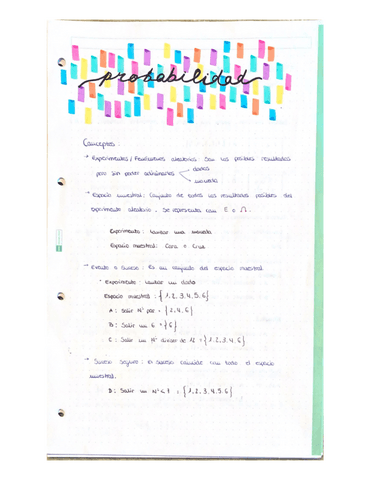 probabilidad
Conceptos:
→ Experimentos / Fenómenos aleatorios: Son los posibles resultados
pero sin poder adivinarlos
dados
moneda
→ Espacio muestral: Conjunto de todos los resultados posibles del
experimento aleatorio. Se representa con E o Ω.
Experimento: Lanzar una moneda
Espacio muestral: Cara o Cruz
→ Evento o Suceso: Es un conjunto del espacio muestral
Experimento: Lanzar un dado
Espacio muestral: {1, 2, 3, 4, 5, 6}
A: Salir nº par = {2, 4, 6}
B: Salir un 6 = {6}
C: Salir un Nº = {1, 2, 3, 4, 6}
→ Suceso seguro: El suceso coincide con todo el espacio
muestral.
D: Salir un Nº < 7 = {1, 2, 3, 4, 5, 6}